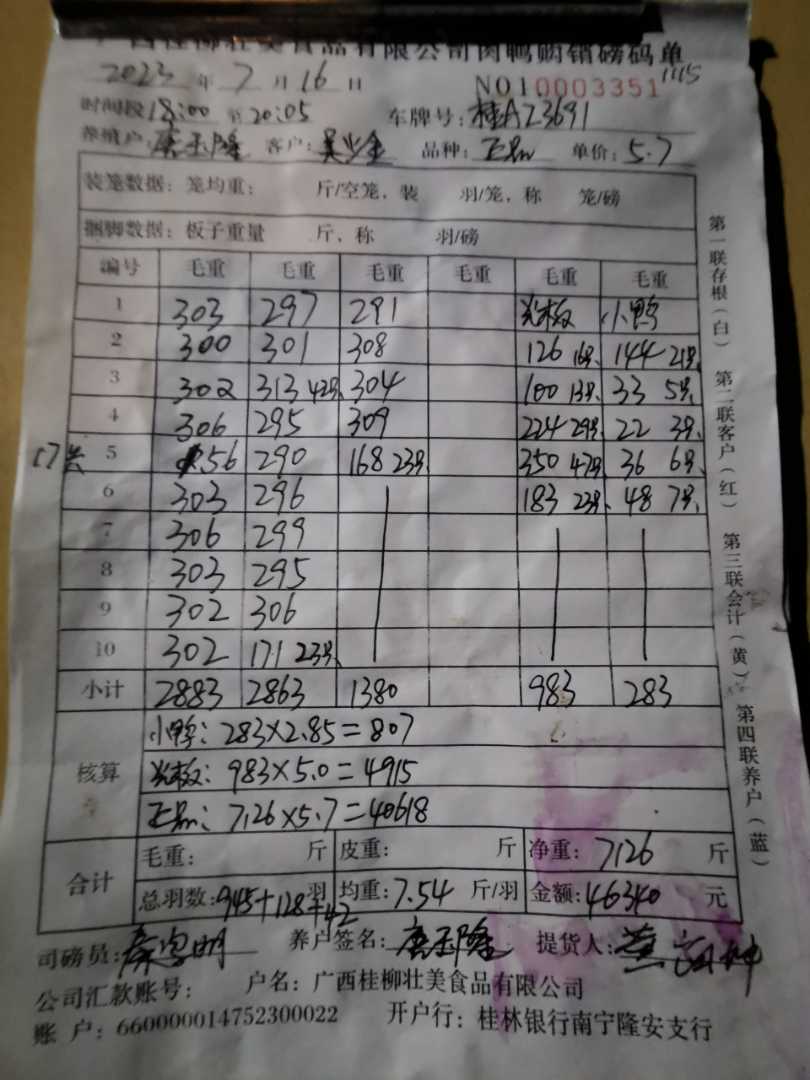 广西桂柳壮美食品有限公司肉鸭购销磅码单
2023年7月16日 NO10003351 1115
时间段18:00至20:05 车牌号:桂AZ3691
养殖户: 客户: 品种:正品 单价:5.7
装笼数据:笼均重: 斤/空笼,装 羽/笼,称 笼/磅
捆脚数据:板子重量 斤,称 羽/磅
编号 毛重 毛重 毛重 毛重 毛重 毛重
1 303 297 291 光板 小鸭
2 300 301 308 126 16只 144 21只
3 302 313 42只 304 100 13只 33 5只
4 306 295 309 224 29只 22 3只
17只 5 156 290 168 23只 350 47只 36 6只
6 303 296 183 23只 48 7只
7 306 299
8 303 295
9 302 306
10 302 171 23只
小计 2883 2863 1380 983 283
核算 小鸭:283×2.85=807
光板:983×5.0=4915
正品:7126×5.7=40618
合计 毛重: 斤 皮重: 斤 净重:7126 斤
总羽数:945+128+42羽 均重:7.54斤/羽 金额:46340元
司磅员: 养户签名: 提货人:
公司汇款账号: 户名:广西桂柳壮美食品有限公司
账 户:660000014752300022 开户行:桂林银行南宁隆安支行
第一联存根(白) 第二联客户(红) 第三联会计(黄) 第四联养户(蓝)